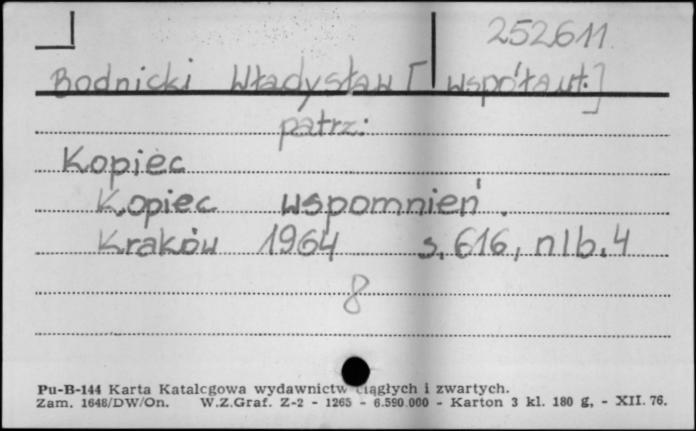 252611
Bodnicki Władysław [współaut.]
patrz:
Kopiec
Kopiec wspomnień.
Kraków 1964 s. 616, nlb. 4
8
Pu-B-144 Karta Katalcgowa wydawnictw ciągłych i zwartych.
Zam. 1648/DW/On. W.Z.Graf. Z-2 - 1265 - 6.590.000 - Karton 3 kl. 180 g, - XII. 76.